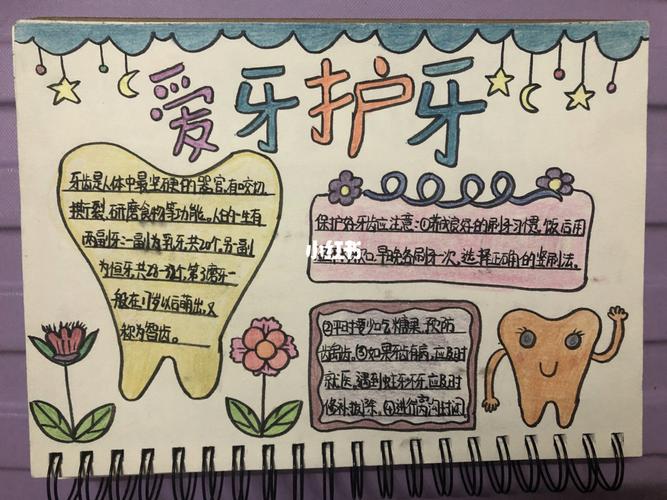 爱牙护牙
牙齿是人体中最坚硬的器官,有咬切、
撕裂、研磨食物等功能。人的一生有
两副牙:一副为乳牙共20个,另一副
为恒牙共28-32个,第3磨牙一
般在17岁以后萌出,又
称为智齿。
保护好牙齿应注意:①养成良好的刷牙习惯,饭后用
口,早晚各刷牙一次,选择正确的坚刷法。
小红书
②平时要少吃糖果,预防
龋齿。③如果牙齿有病,应及时
就医。遇到蛀牙坏牙,应及时
修补拔除。④进行窝沟封闭。